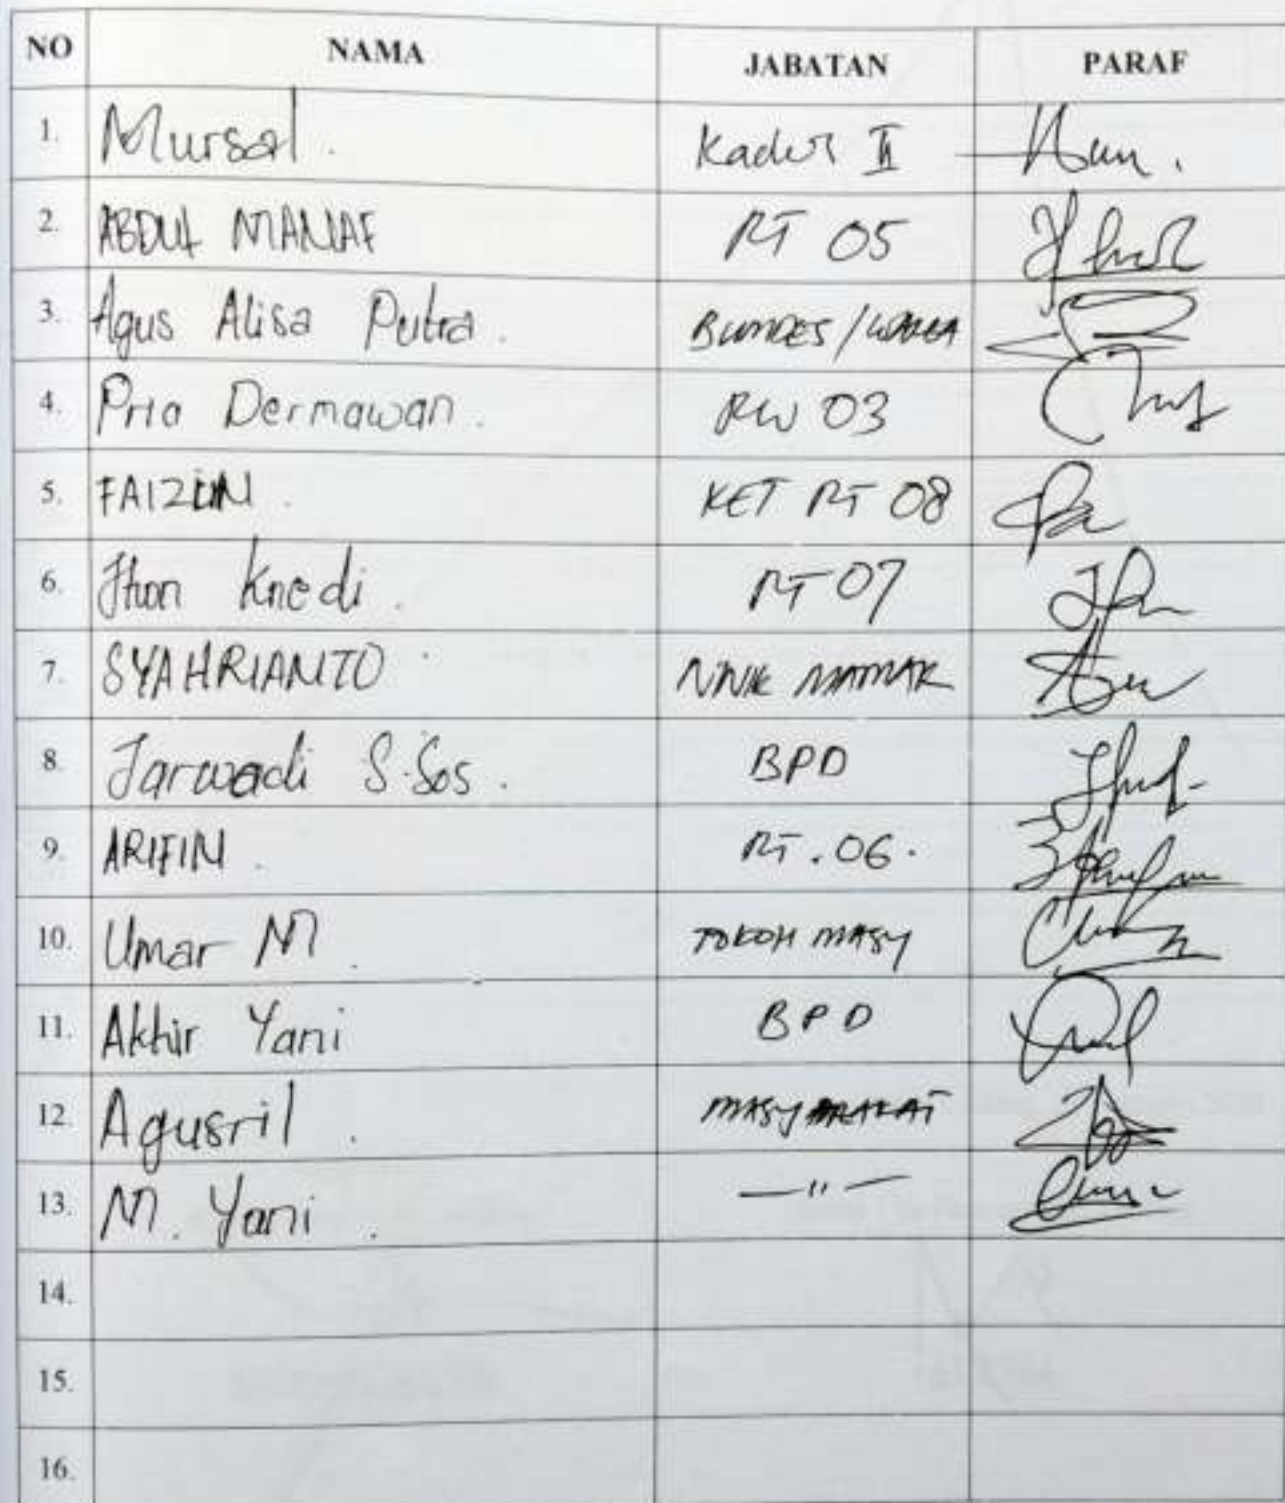 NO NAMA JABATAN PARAF
1. Mursal. Kadus II
2. ABDUL MANAF RT 05
3. Agus Alisa Putra. BUMDES / WARGA
4. Pria Dermawan. RW 03
5. FAIZUN. KET RT 08
6. Jhon Knedi. RT 07
7. SYAHRIANTO NINIK MAMAK
8. Jarwadi S.Sos. BPD
9. ARIFIN. RT. 06.
10. Umar M. TOKOH MASY
11. Akhir Yani BPD
12. Agusril. MASYARAKAT
13. M. Yani. —"—
14.
15.
16.